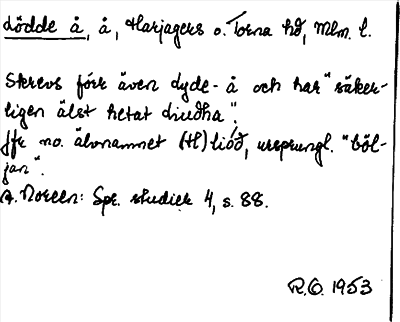 Lödde å, å, Harjagers o. Torna hd, Mlm. l.
Skrevs förr även dyde-å och har "säker-
ligen älst hetat Liudha".
Jfr no. älvnamnet (Hl)lióð, ursprungl. "böl-
jan".
A. Noreen: Spr. studier 4, s. 88.
R.O. 1953